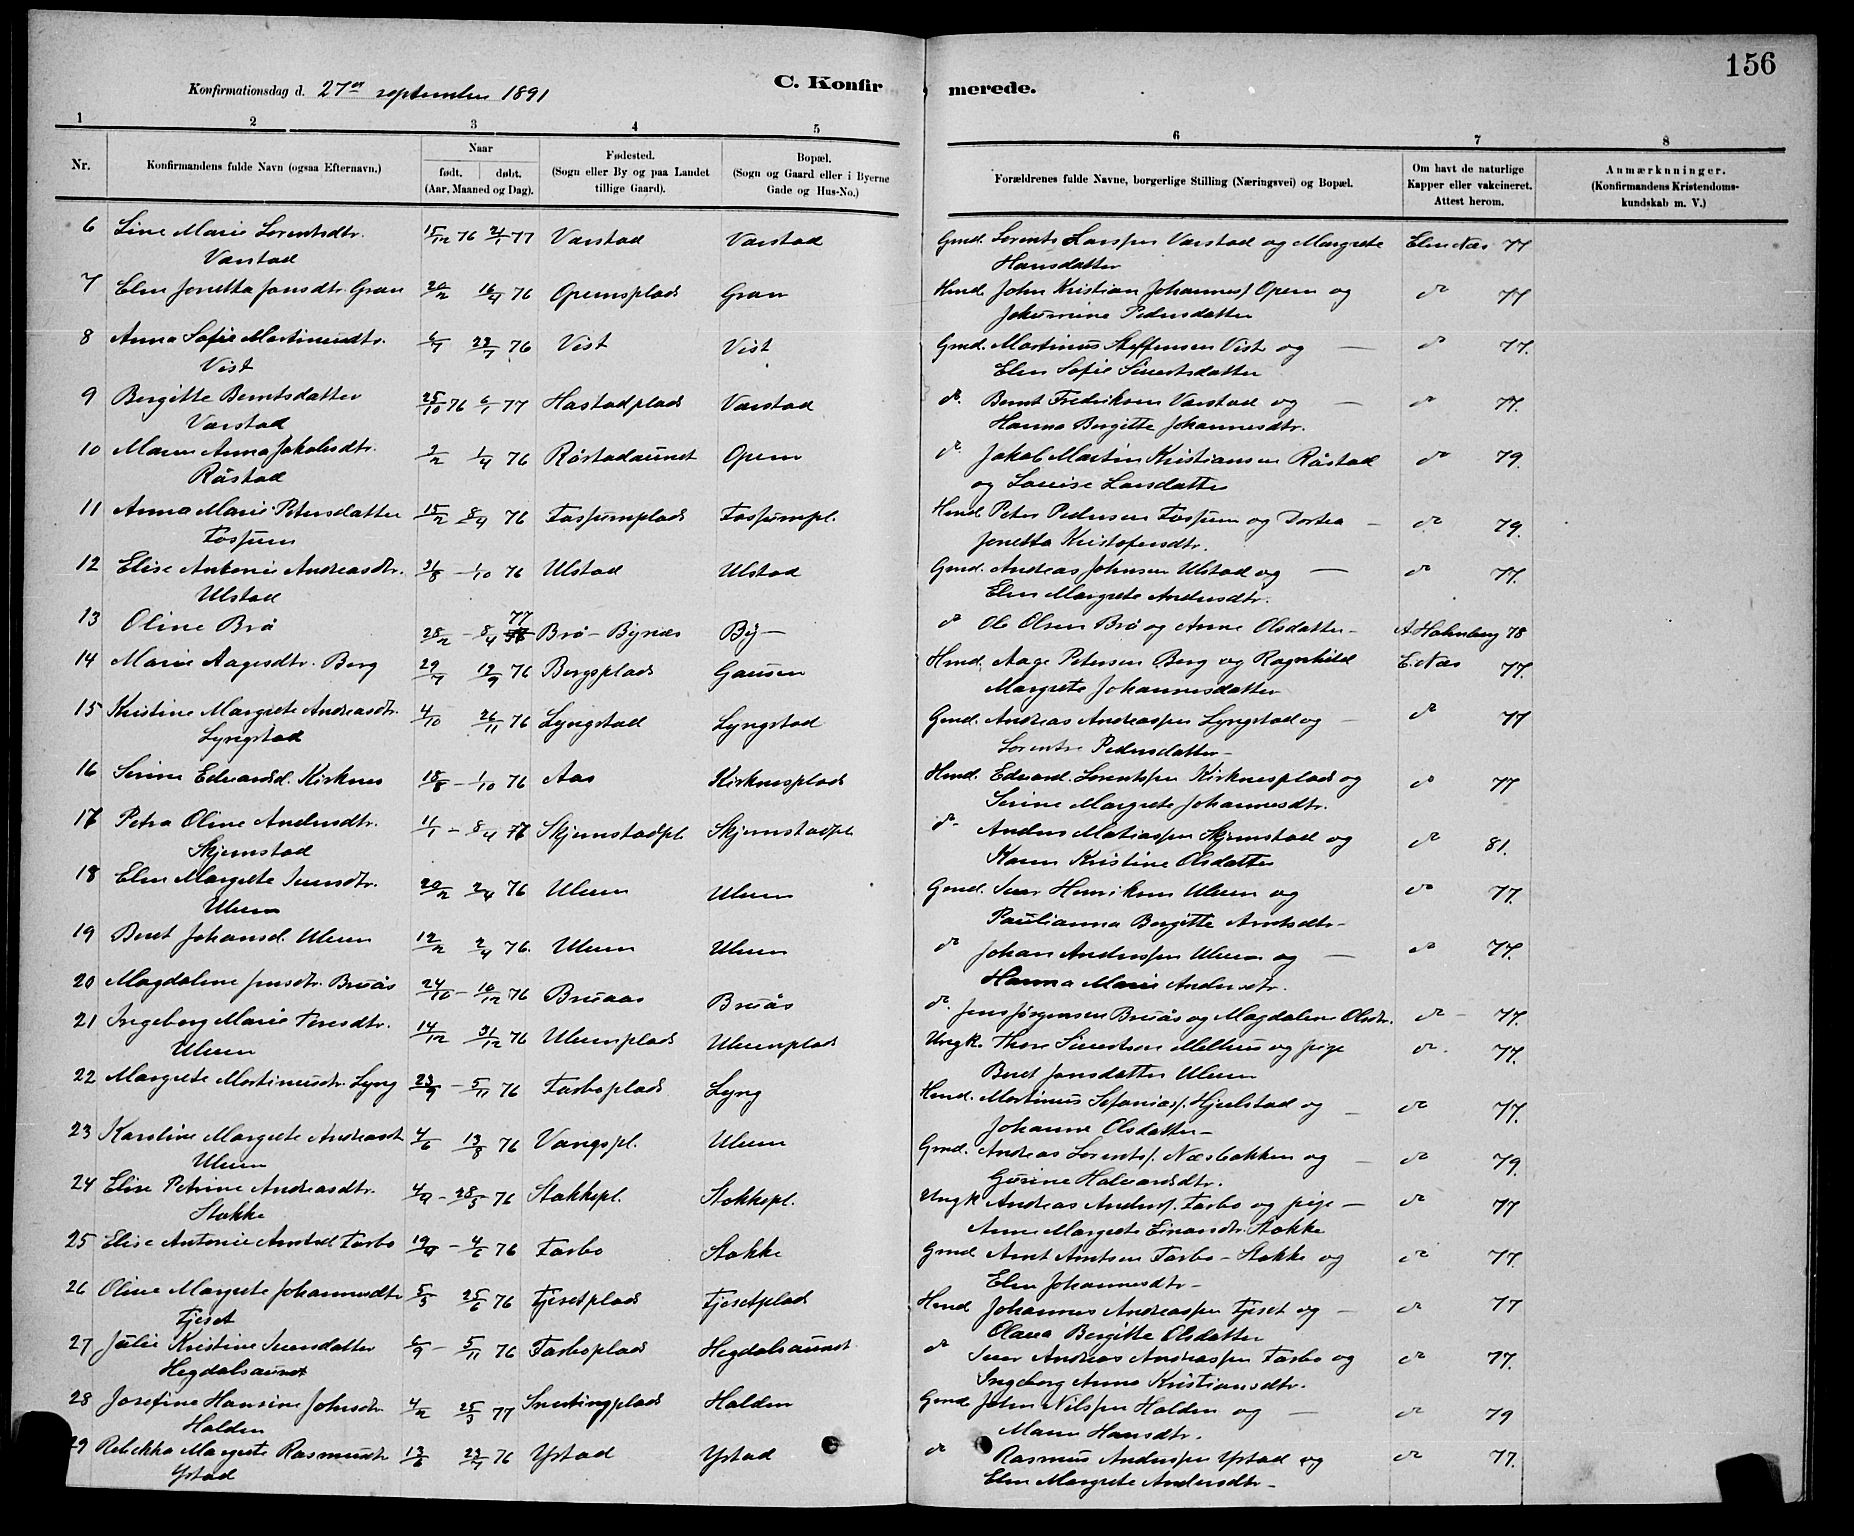 156
Konfirmationsdag d. 27de september 1891
C. Konfirmerede.
1 2 3 4 5 6 7 8
Nr. Konfirmandens fulde Navn (ogsaa Efternavn.) Naar født. døbt. (Aar, Maaned og Dag). Fødested. (Sogn eller By og paa Landet tillige Gaard). Bopæl. (Sogn og Gaard eller i Byerne Gade og Hus-No.) Forældrenes fulde Navne, borgerlige Stilling (Næringsvei) og Bopæl. Om havt de naturlige Kapper eller vakcineret. Attest herom. Anmærkninger. (Konfirmandens Kristendomskundskab m. V.)
6 Line Marie Lorentsdtr. 15/12 76 2/1 77 Værstad Værstad Gmd. Lorents Larssen Værstad og Margrete Elen Næs 77
Værstad Hansdatter
7 Elen Jonetta Jonsdtr. Gran 20/2 16/4 76 Opemsplads Gran Hmd. John Kristian Johanness. Opem og do 77
Pedersdatter
8 Anna Sofie Martinusdtr. 76 Vist Vist Gmd. Martinus Steffensen Vist og — do 77.
Vist Elen Sofie Sivertsdatter
9 Bergitte Berntsdatter 25/10 76 6/1 77 Hastadplads Værstad do. Bernt Fredriksen Værstad og — do 77.
Værstad Hanna Bergitte Johannesdtr.
10 Maren Anna Jakobsdtr. 2/2 1/4 76 Røstadaunet Opem do Jakob Martin Kristiansen Råstad do 79.
Råstad og Louise Larsdatter
11 Anna Marie Petersdatter 15/2 8/4 76 Fossumplads Fossumpl. Hmd. Peter Pedersen Fossum og Dortea — do 79.
Fossum Jonetta Kristofersdtr.
12 Elise Antonie Andreasdtr. 31/8 — 1/10 76 Ulstad Ulstad Gmd. Andreas Johnsen Ulstad og — do 77.
Ulstad Elen Margrete Andersdtr.
13 Oline Brø 28/2 — 8/4 77 Brø — Bynæs By — do Ole Olsen Brø og Anne Olsdatter — A. Holmberg 78
14 Marie Aagesdtr. Berg 29/7 76 Bergsplads Gausen Hmd. Aage Petersen Berg og Ragnhild E. Næs 77.
Margrete Johannesdatter
15 Kristine Margrete Andreasdtr. 4/10 26/11 76 Lyngstad Lyngstad Gmd. Andreas Andreassen Lyngstad og — do 77
Lyngstad Lorentse Pedersdatter —
16 Serine Edvardsd. Kirknes 18/8 — 1/10 76 Aas Kirknesplads Hmd. Edvard Lorentssen Kirknesplads og do 77
Serine Margrete Johannesdtr.
17 Petra Oline Andersdtr. 11/1 — 8/4 Skjemstadpl Skjemstadpl do Anders Matiassen Skjemstad og do 81.
Skjemstad Karen Kristine Olsdatter
18 Elen Margrete Iversdtr. 20/2 2/4 76 Uleen Uleen Gmd. Iver Henriksen Uleen og do 77.
Uleen Paulianna Bergitte Arntsdtr —
19 Beret Johansd. Uleen 12/2 2/4 76. Uleen Uleen do Johan Anderssen Uleen og — do 77.
Hanna Marie Andersdtr.
20 Magdalene Jensdtr. Bruås 24/10 — 10/12 76 Bruaas Bruås do. Jens Jørgensen Bruås og Magdalene Olsdtr. do — 77.
21 Ingeborg Marie Toresdtr. 14/12 31/12 76 Uleenplads Uleenplads Ungk. Thore Sivertsen Melhus og pige do. 77.
Uleen Beret Jonsdatter Uleen
22 Margrete Martinusdtr. Lyng 23/9 — 5/11 76 Farboplads Lyng Hmd. Martinus Sefanias. Hjelstad og — do 77.
Johanne Olsdatter —
23 Karoline Margrete Andreasdt 4/6 13/8 76 Vangspl. Uleen Gmd. Andreas Lorents. Næsbakken og — do 79.
Uleen Gurine Halvardsdtr.
24 Elise Petrine Andreasdtr. 4/4 — 28/5 76 Stokkepl. Stokkepl. Ungk Andreas Anders. Farbo og pige — do 77
Stokke Anne Margrete Einarsdtr. Stokke
25 Elise Antonie Arntsd Farbo 19/4 — 4/6 76 Farbo Stokke Gmd Arnt Arntsen Farbo — Stokke og do 77.
Elen Johannesdtr —
26 Oline Margrete Johannesdtr 5/5 25/6 76 Fjesetplads Fjesetplads Hmd Johannes Andreassen Fjeset og — do 77
Fjeset Olava Bergitte Olsdatter
27 Julie Kristine Iversdatter 6/9 — 5/11 76 Farboplads Hegdalsaunet do Iver Andreas Andreassen Farbo og do 77.
Hegdalsaunet Ingeborg Anna Kristiansdtr.
28 Josefine Hansine Johnsdtr 4/2 25/3 77 Snertingplads Halden Gmd John Nilssen Halden og — do 79
Halden Maren Hansdtr.
29 Rebekka Margrete Rasmusdtr 76 Ystad Ystad do Rasmus Anderssen Ystad og do 77.
Ystad Elen Margrete Andersdtr —